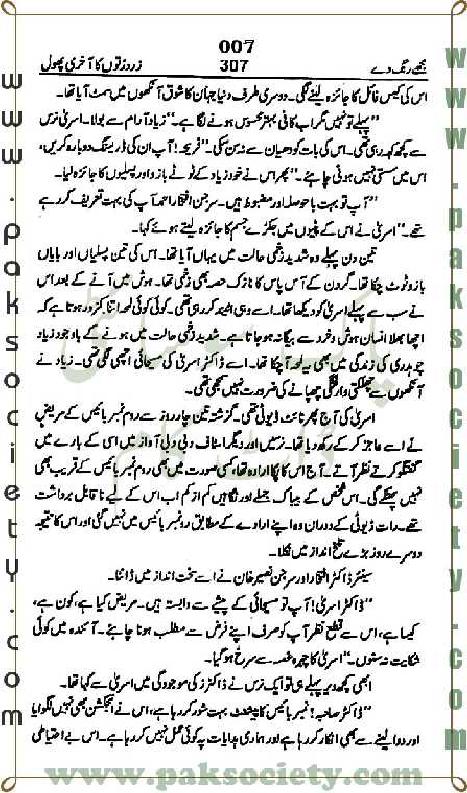 007
مجھے رنگ دے 307 زرد رتوں کا آخری پھول
اس کی کیس فائل کا جائزہ لینے لگی۔ دوسری طرف دنیا جہان کا شوق آنکھوں میں سمٹ آیا تھا۔
"پہلے تو نہیں مگر اب کافی بہتر محسوس ہونے لگا ہے۔" زیاد آرام سے بولا۔ اسریٰ نرس
سے کچھ کہہ رہی تھی۔ اس کی بات کو دھیان سے نہ سن سکی۔ "فریحہ! آپ ان کی ڈریسنگ دوبارہ کریں،
اس میں سستی نہیں ہونی چاہئے۔" پھر اس نے خود زیاد کے ٹوٹے بازو اور پسلیوں کا جائزہ لیا۔
"آپ تو بہت باحوصلہ اور مضبوط ہیں۔ سرجن افتخار احمد آپ کی بہت تعریف کر رہے
تھے۔" اسریٰ نے اس کے پٹیوں میں جکڑے جسم کا جائزہ لیتے ہوئے کہا۔
تین دن پہلے وہ شدید زخمی حالت میں یہاں آیا تھا۔ اس کی تین پسلیاں اور بایاں
بازو ٹوٹ چکا تھا۔ گردن کے آس پاس کا نازک حصہ بھی زخمی تھا۔ ہوش میں آنے کے بعد اس
نے سب سے پہلے اسریٰ کو دیکھا تھا۔ اسے وہی اٹینڈ کر رہی تھی۔ کوئی کوئی لمحہ اتنا کمزور ہوتا ہے کہ
اچھا بھلا انسان ہوش و خرد سے بیگانہ ہو جاتا ہے۔ شدید زخمی حالت میں ہونے کے باوجود زیاد
چوہدری کی زندگی میں بھی یہ لمحہ آ چکا تھا۔ اسے ڈاکٹر اسریٰ کی مسیحائی اچھی لگی تھی۔ زیاد نے
آنکھوں سے چھلکتی وارفتگی چھپانے کی ضرورت نہیں سمجھی تھی۔
اسریٰ کی آج پھر نائٹ ڈیوٹی تھی۔ گزشتہ تین چار روز سے روم نمبر بائیس کے مریض
نے اسے عاجز کر کے رکھ دیا تھا۔ نرسیں اور دیگر اسٹاف دبی دبی آواز میں اسی کے بارے میں
گفتگو کرتے نظر آتے۔ آج اس کا پکا ارادہ تھا، کسی صورت میں بھی روم نمبر بائیس کے قریب بھی
نہیں پھٹکے گی۔ اس شخص کے بیباک جملے اور نگاہیں کم از کم اب اس کے لیے ناقابل برداشت
تھے۔ رات ڈیوٹی کے دوران وہ اپنے ارادے کے مطابق روم نمبر بائیس میں نہیں گئی اور اس کا نتیجہ
دوسرے روز بڑے تلخ انداز میں نکلا۔
سینئر ڈاکٹر افتخار اور سرجن نصیر خان نے اسے سخت انداز میں ڈانٹا۔
"ڈاکٹر اسریٰ! آپ تو مسیحائی کے پیشے سے وابستہ ہیں۔ مریض کیا ہے، کون ہے،
کیسا ہے، اس سے قطع نظر آپ کو صرف اپنے فرض سے مطلب ہونا چاہئے۔ آئندہ میں کوئی
شکایت نہ سنوں۔" اسریٰ کا چہرہ غصہ سے سرخ ہو گیا۔
ابھی کچھ دیر پہلے ہی تو ایک نرس نے ڈاکٹرز کی موجودگی میں اسریٰ سے کہا تھا۔
"ڈاکٹر صاحبہ! نمبر بائیس کا پیشنٹ بہت شور کر رہا ہے، اس نے انجکشن بھی نہیں لگوایا
اور دوا لینے سے بھی انکار کر رہا ہے اور ہماری ہدایات پہ کوئی عمل نہیں کر رہا ہے۔ اس بے احتیاطی
www.paksociety.com
www.paksociety.com
www.paksociety.com
پاک سوسائٹی
ڈاٹ کام